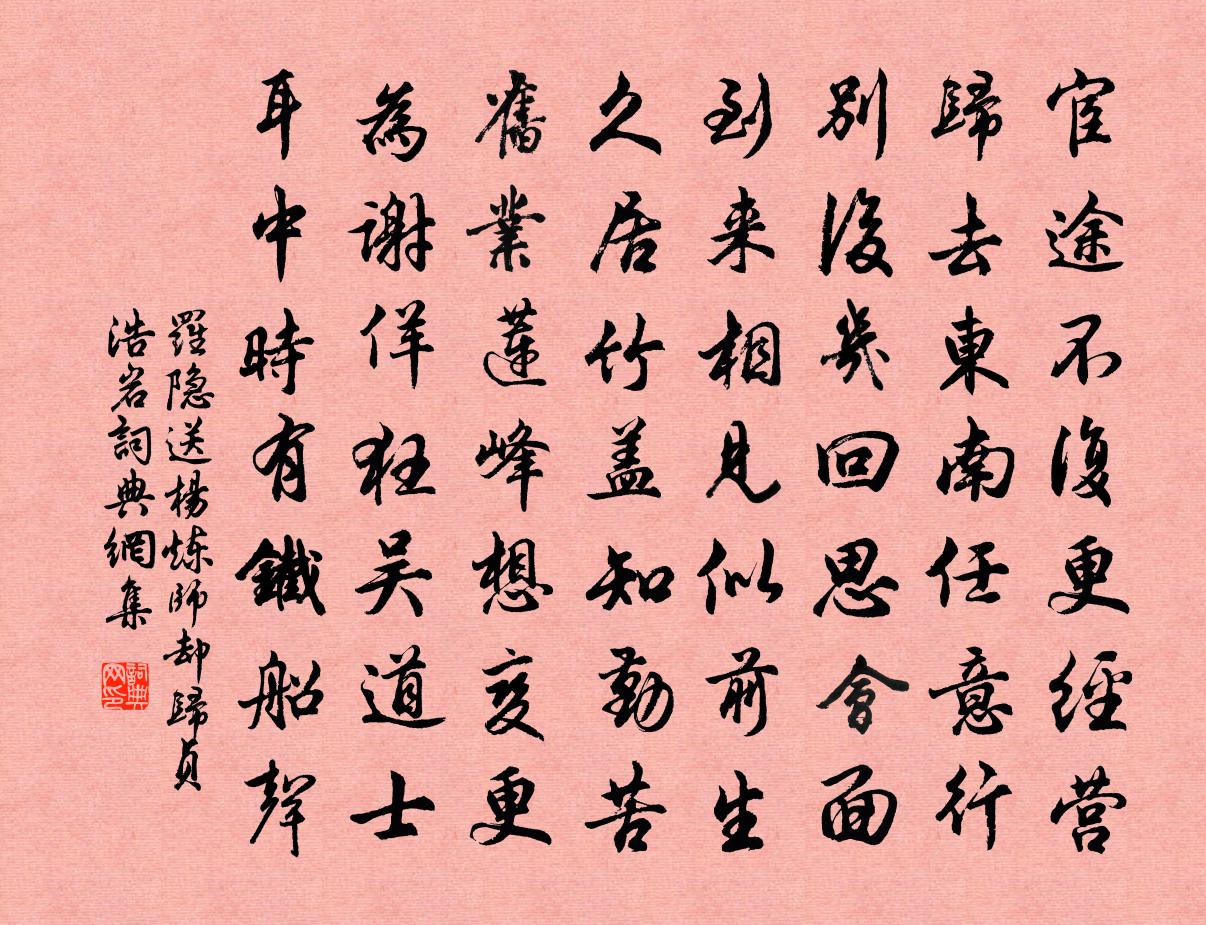 宦途不復更經营
歸去東南任意行
别後幾回思會面
到来相見似前生
久居竹盖知勤苦
舊業蓮峰想變更
為謝佯狂吴道士
耳中時有鐵船聲
羅隐送楊炼師却歸貞
浩岩詞典網集
詞典网印